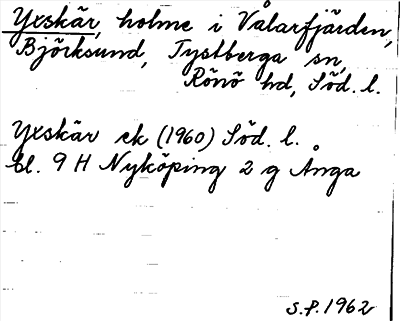 Yxskär, holme i Vålarfjärden,
Björksund, Tystberga sn,
Rönö hd, Söd. l.
Yxskär ek (1960) Söd. l.
bl. 9 H Nyköping 2 g Ånga
S.P. 1962